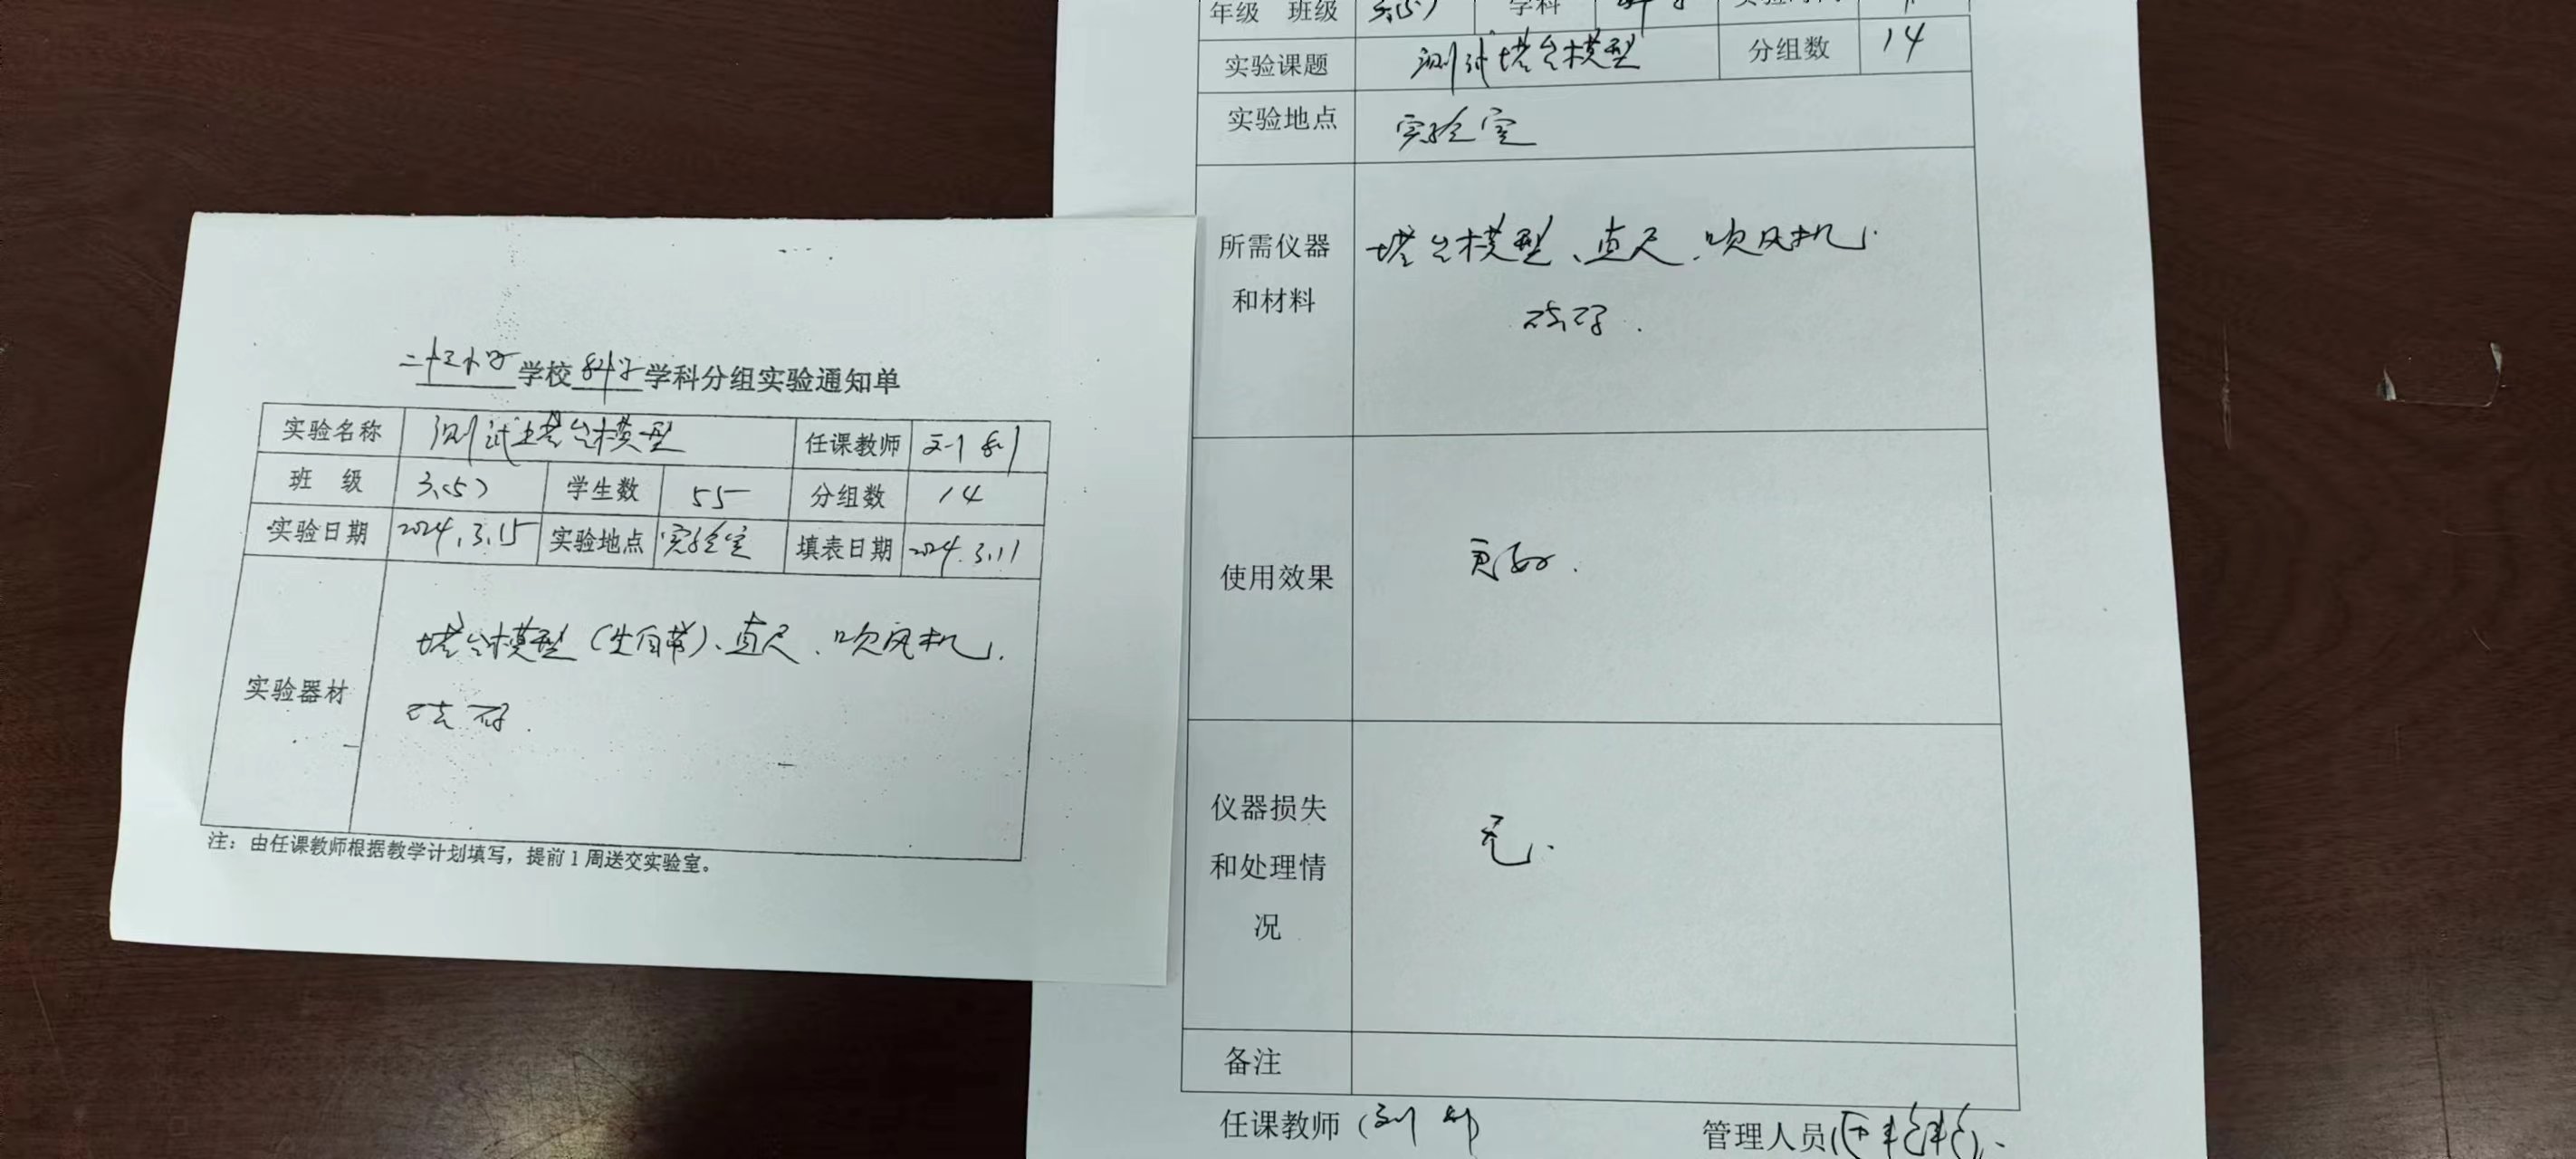 学校科学学科分组实验通知单
实验名称 测试塔台模型 任课教师 刘
班 级 3.(5) 学生数 55 分组数 14
实验日期 2024.3.15 实验地点 实验室 填表日期 2024.3.11
实验器材 塔台模型(生自带)、直尺、吹风机、
砝码.
注：由任课教师根据教学计划填写，提前1周送交实验室。
年级 班级 3.(5) 学科 科学
实验课题 测试塔台模型 分组数 14
实验地点 实验室
所需仪器和材料 塔台模型、直尺、吹风机、
砝码.
使用效果 更好.
仪器损失和处理情况 无.
备注
任课教师(刘
管理人员(